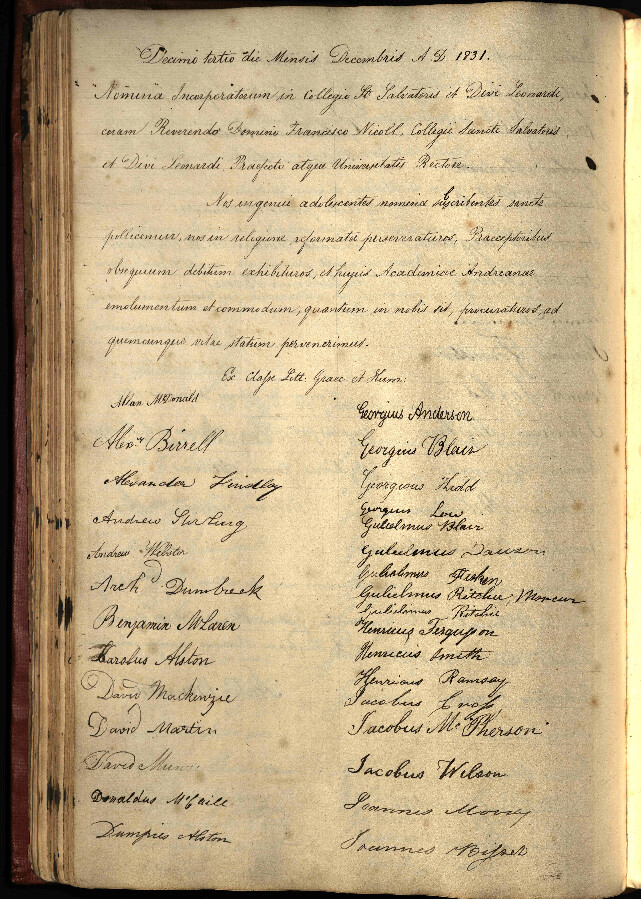 Decimo tertio die Mensis Decembris A D 1831.
Nomina Incorporatorum in Collegio Sti Salvatoris et Divi Leonardi,
coram Reverendo Domino Francisco Nicoll, Collegii Sancti Salvatoris
et Divi Leonardi Praefecto atque Universitatis Rectore.
Nos ingenui adolescentes nomina subscribentes sancte
pollicemur, nos in religione reformata perseveraturos, Praeceptoribus
obsequium debitum exhibituros, et hujus Academiae Andreanae
emolumentum et commodum, quantum in nobis sit, procuraturos, ad
quemcunque vitae statum pervenerimus.
Ex Classe Litt: Graec et Hum:
Allan McDonald
Alexr Birrell
Alexander Findlay
Andrew Stirling
Andrew Webster
Archd Dumbreck
Benjamin McLaren
Karolus Alston
David Mackenzie
David Martin
David Munro
Donaldus McCaill
Dumfries Alston
Georgius Anderson
Georgius Blair
Georgious Kidd
Georgius Low
Gulielmus Blair
Gulielmus Dawson
Gulielmus
Gulielmus Ritchie Moncur
Gulielmus Ritchie
Henricus Fergusson
Henricus Smith
Henricus Ramsay
Jacobus
Jacobus McPherson
Jacobus Wilson
Joannes
Joannes